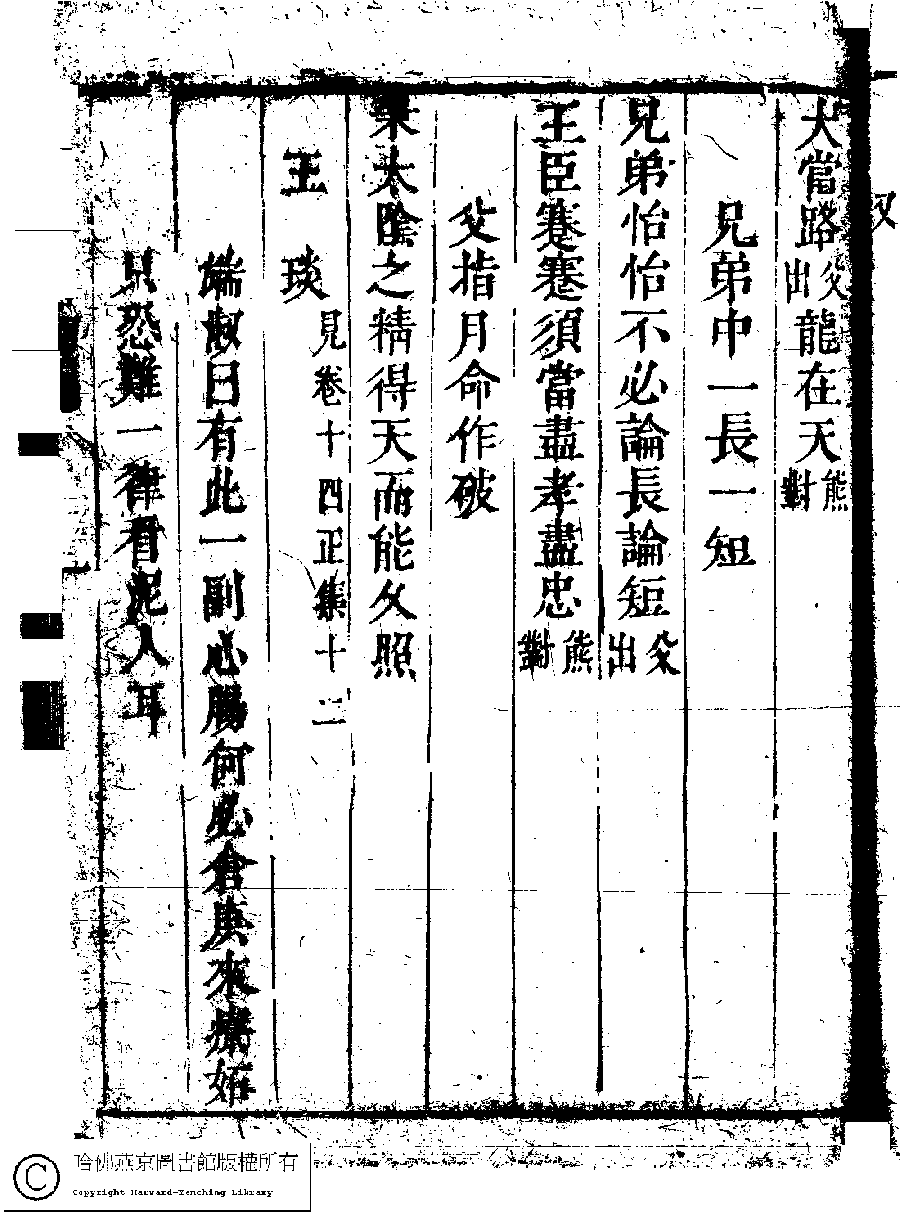 犬當路父出龍在天熊對
兄弟中一長一短
兄弟怡怡不必論長論短父出
王臣蹇蹇須當盡孝盡忠熊對
父指月命作破
秉太陰之精得天而能久照
王琰見卷十四正集十二
端淑曰有此一副心腸何必倉庚來療妬
只恐難一律看泥人耳
哈佛燕京圖書館版權所有
Copyright Harvard-Yenching Library